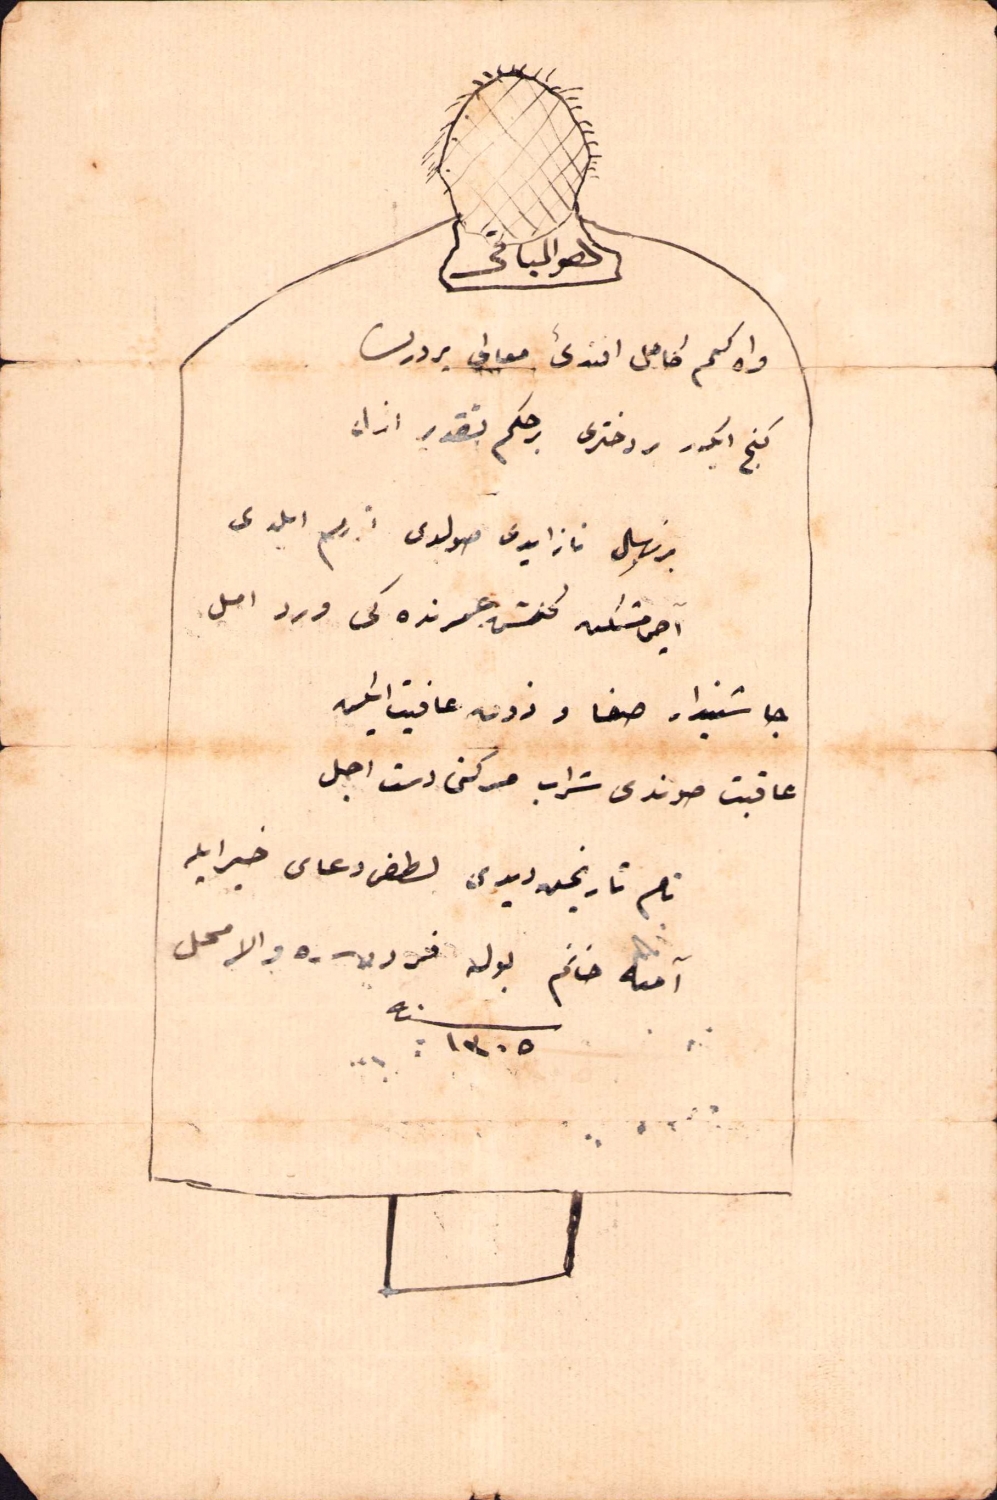 هو الباقی
واه كیم فاضل افندئ معالی پرورك
كنج ایكن بر دختری برحكم تقدیر ازل
بر نهال ناز ایدی صولدی ایلدی
آچمامشكن گلشن عمرنده كی ورد امل
چاشنیدار صفا و ذوق عافیت ایكن
عاقبت صوندی شراب مرگی دست اجل
تام تاریخن دیدی لطفی دعای خیر ایله
آمنه خانم بوله فردوسده والا محل
سنه
١٣٠٥